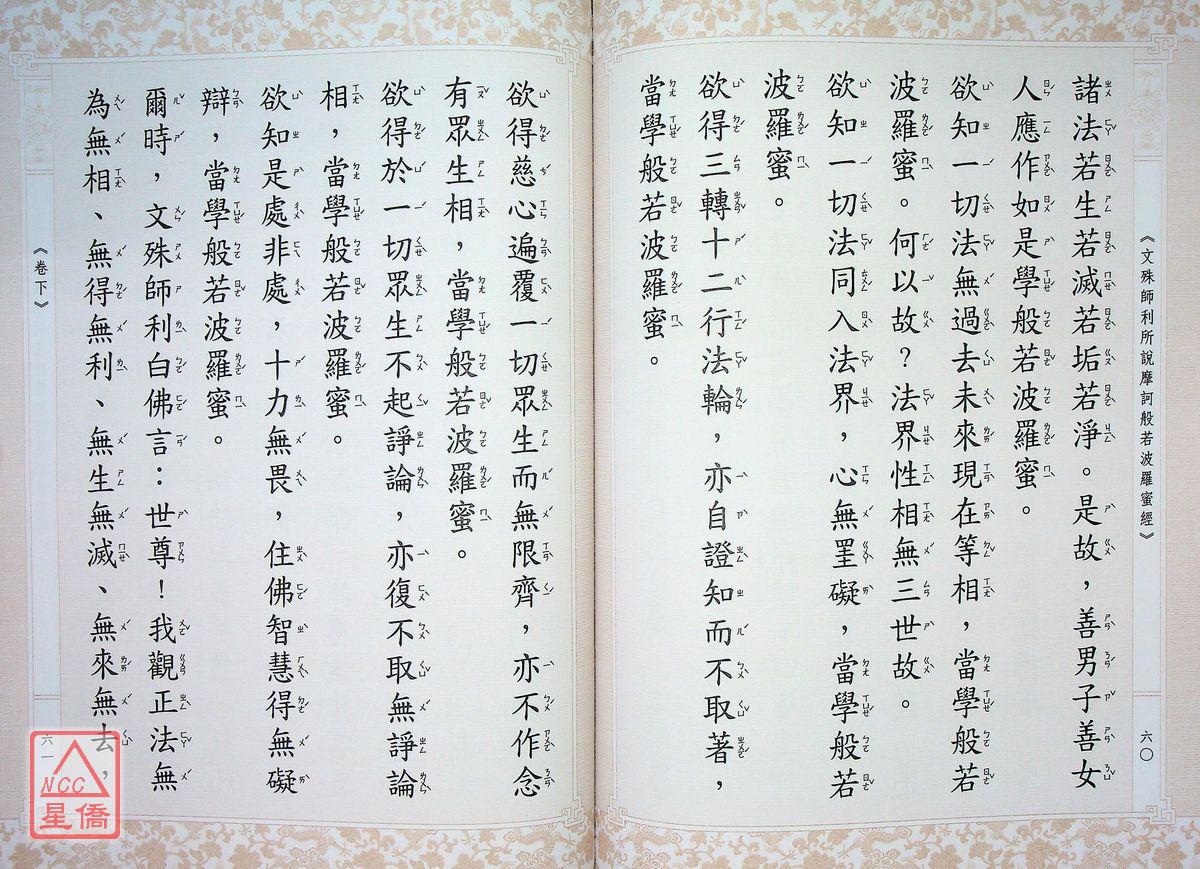 《文殊師利所說摩訶般若波羅蜜經》
六〇
諸法若生若滅若垢若淨。是故，善男子善女
人應作如是學般若波羅蜜。
欲知一切法無過去未來現在等相，當學般若
波羅蜜。何以故？法界性相無三世故。
欲知一切法同入法界，心無罣礙，當學般若
波羅蜜。
欲得三轉十二行法輪，亦自證知而不取著，
當學般若波羅蜜。
欲得慈心遍覆一切眾生而無限齊，亦不作念
有眾生相，當學般若波羅蜜。
欲得於一切眾生不起諍論，亦復不取無諍論
相，當學般若波羅蜜。
欲知是處非處，十力無畏，住佛智慧得無礙
辯，當學般若波羅蜜。
爾時，文殊師利白佛言：世尊！我觀正法無
為無相、無得無利、無生無滅、無來無去，
《卷下》
六一
NCC
星僑